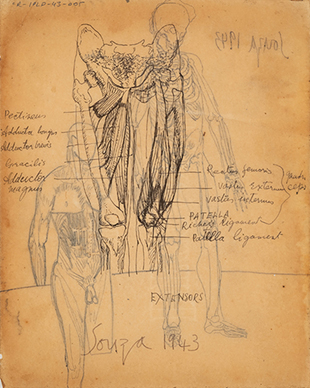 PR-IPLD-43-005
Souza 1943
Pectineus
Adductor longus
Adductor brevis
Gracilis
Adductor
magnus
Rectus femoris
Vastus externus
Vastus internus
PATELLA
ligament
Patella ligament
EXTENSORS
Souza 1943